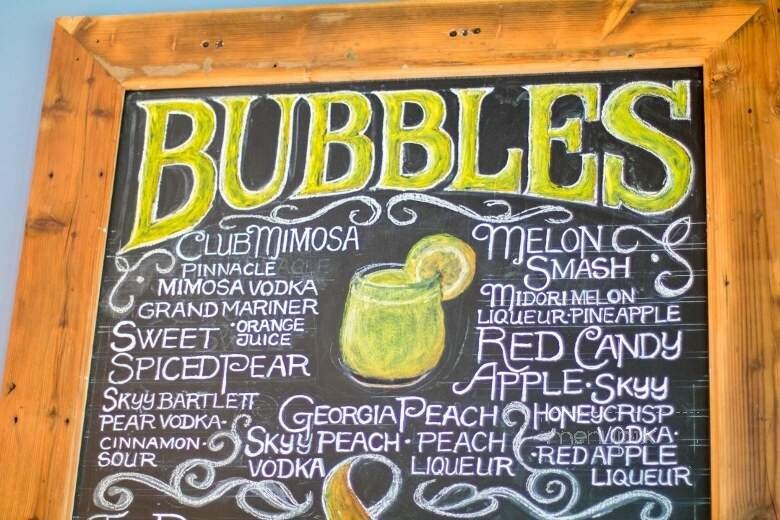 BUBBLES
CLUB MIMOSA
PINNACLE
MIMOSA VODKA
GRAND MARINER
·ORANGE
JUICE
SWEET
SPICED PEAR
SKYY BARTLETT
PEAR VODKA·
CINNAMON·
SOUR
MELON
SMASH
MIDORI MELON
LIQUEUR·PINEAPPLE
RED CANDY
APPLE·SKYY
HONEYCRISP
VODKA·
·RED APPLE
LIQUEUR
GEORGIA PEACH
SKYY PEACH · PEACH
VODKA LIQUEUR